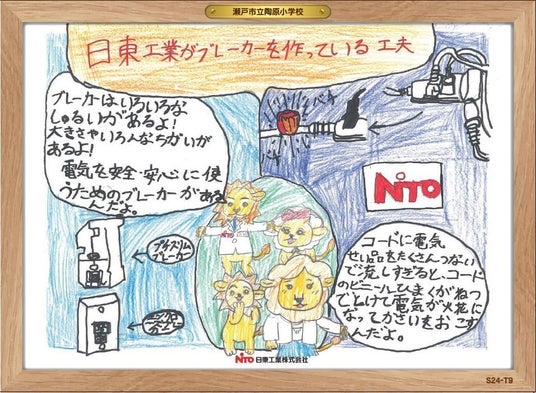 瀬戸市立陶原小学校
日東工業がブレーカーを作っている工夫
ブレーカーはいろいろな
しゅるいがあるよ!
大きさやいろんなちがいが
あるよ!
電気を安全・安心に使
うためのブレーカーがある
んだよ。
バチ
バチ
NiTO
プチスリム
ブレーカー
コードに電気
せい品をたくさんつない
で流しすぎると、コード
のビニールひまくがねつ
でとけて電気が火花に
なってかさいをおこす
んだよ。
NiTO
NiTO 日東工業株式会社
S24-T9